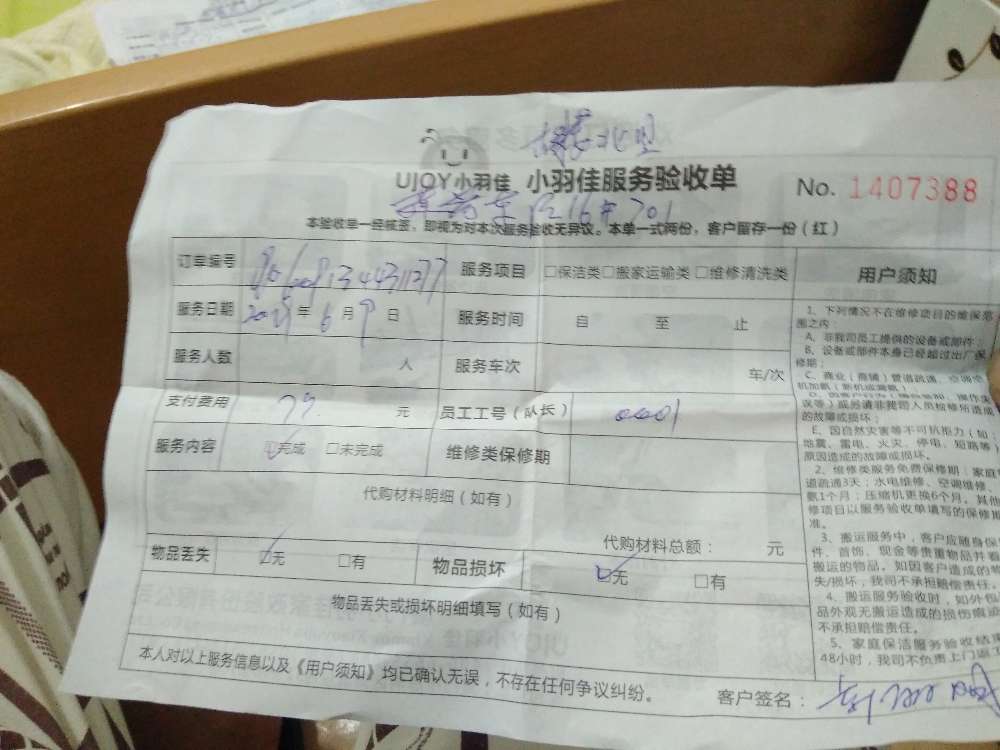 UJOY小羽佳 小羽佳服务验收单 No. 1407388
16# 701
本验收单一经核签，即视为对本次服务验收无异议。本单一式两份，客户留存一份（红）
订单编号 服务项目 □保洁类□搬家运输类□维修清洗类 用户须知
服务日期 年 6 月 9 日 服务时间 自 至 止
服务人数 人 服务车次 车/次
支付费用 元 员工工号（队长） 0001
服务内容 □完成 □未完成 维修类保修期
代购材料明细（如有）
代购材料总额： 元
物品丢失 □无 □有 物品损坏 □无 □有
物品丢失或损坏明细填写（如有）
本人对以上服务信息以及《用户须知》均已确认无误，不存在任何争议纠纷。 客户签名：
1、下列情况不在维修项目的维保范
围之内：
A、非我司员工提供的设备或部件；
B、设备或部件本身已经超过出厂保
修期；
C、商业（商铺）管道疏通、空调
误等）或另请非我司人员检修所造成
的故障或损坏；
E、因自然灾害等不可抗拒力（如：
地震、雷电、火灾、停电、短路等）
原因造成的故障或损坏。
2、维修类服务免费保修期：家庭
道疏通3天；水电维修、空调维修、
氨1个月；压缩机更换6个月。其他
修项目以服务验收单填写的保修期
准。
3、搬运服务中，客户应随身保
件、首饰、现金等贵重物品并看
搬运的物品。如因客户造成的物
失/损坏，我司不承担赔偿责任。
4、搬运服务验收时，如外包
品外观无搬运造成的损伤痕迹
不承担赔偿责任。
5、家庭保洁服务验收结
48小时，我司不负责上门返工